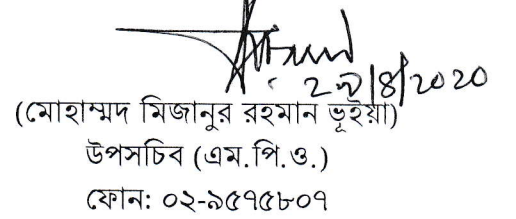 ২৯/৪/২০২০
(মোহাম্মদ মিজানুর রহমান ভূইয়া)
উপসচিব (এম.পি.ও.)
ফোন: ০২-৯৫৭৫৮০৭